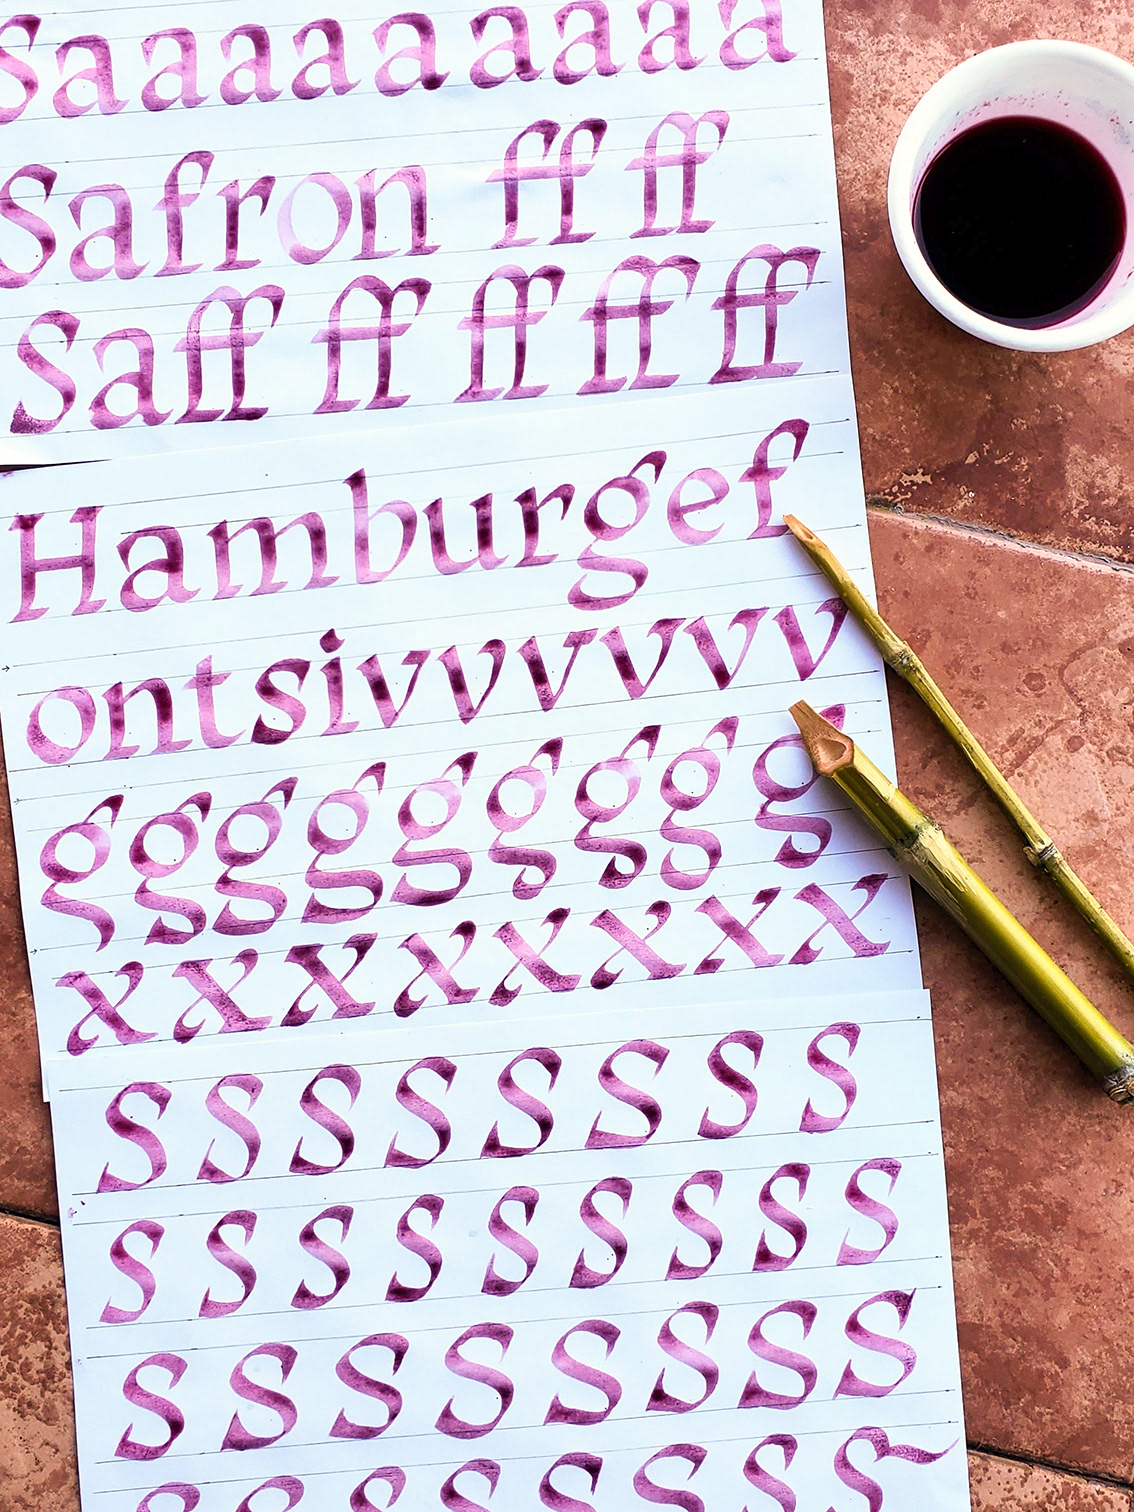 Saaaaaaaaa
Safron ff ff
Saff ff ff ff ff
Hamburgef
ontsivvvvvv
ggggggggg
xxxxxxxx
ssssssss
sssssssss
ssssssss
ssssssss